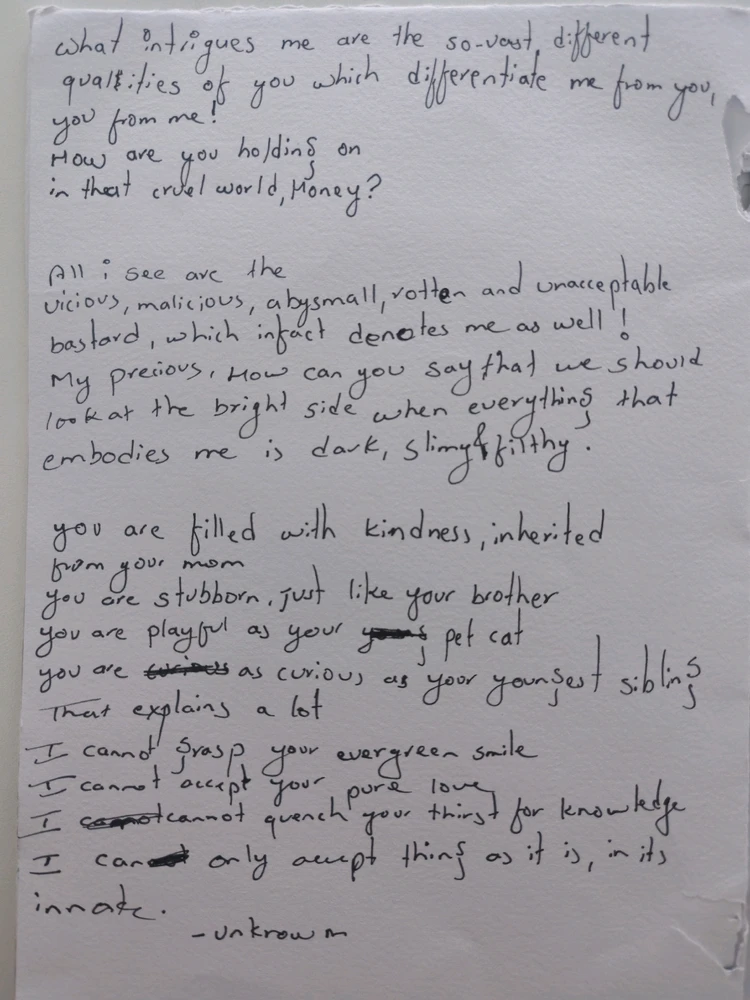 what intrigues me are the so-vast, different
qualities of you which differentiate me from you,
you from me!
How are you holding on
in that cruel world, Honey?
All i see are the
vicious, malicious, abysmall, rotten and unacceptable
bastard, which infact denotes me as well!
My precious, How can you say that we should
look at the bright side when everything that
embodies me is dark, slimy & filthy.
you are filled with kindness, inherited
from your mom
you are stubborn, just like your brother
you are playful as your pet cat
you are as curious as your youngest sibling
That explains a lot
I cannot grasp your evergreen smile
I cannot accept your pure love
I cannot quench your thirst for knowledge
I can only accept thing as it is, in its
innate.
-unknown